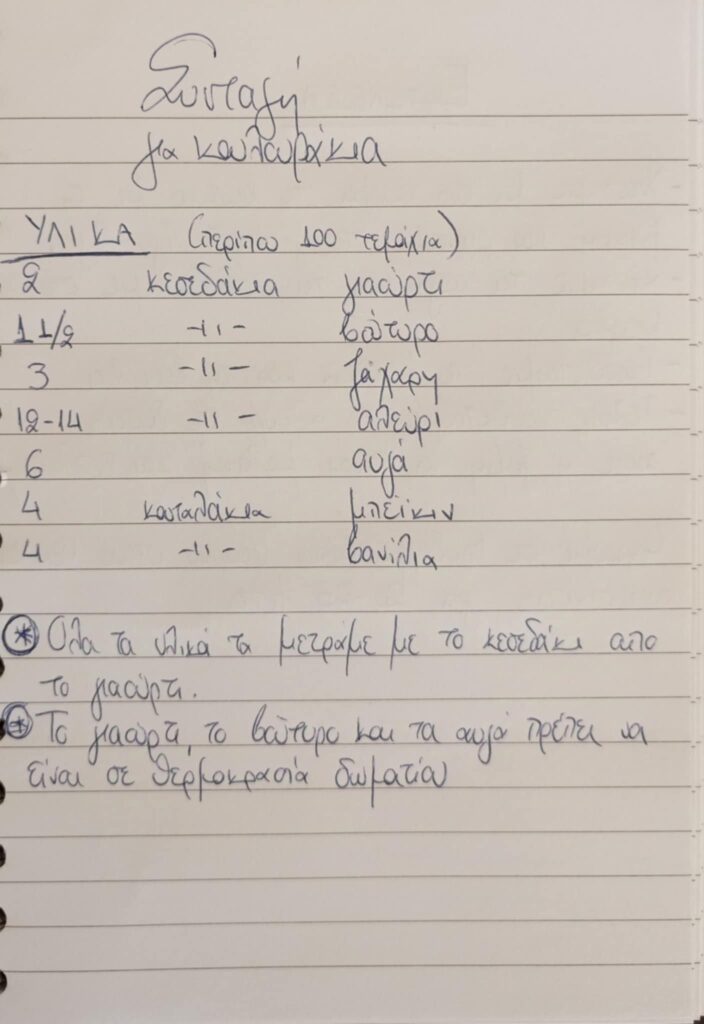 Συνταγή
για κουλουράκια
ΥΛΙΚΑ (περίπου 100 τεμάχια)
2 κεσεδάκια γιαούρτι
1 1/2 -11- βούτυρο
3 -11- ζάχαρη
12-14 -11- αλεύρι
6 αυγά
4 κουταλάκια μπέϊκιν
4 -11- βανίλια
* Όλα τα υλικά τα μετράμε με το κεσεδάκι απο
το γιαούρτι.
* Το γιαούρτι, το βούτυρο και τα αυγά πρέπει να
είναι σε θερμοκρασία δωματίου